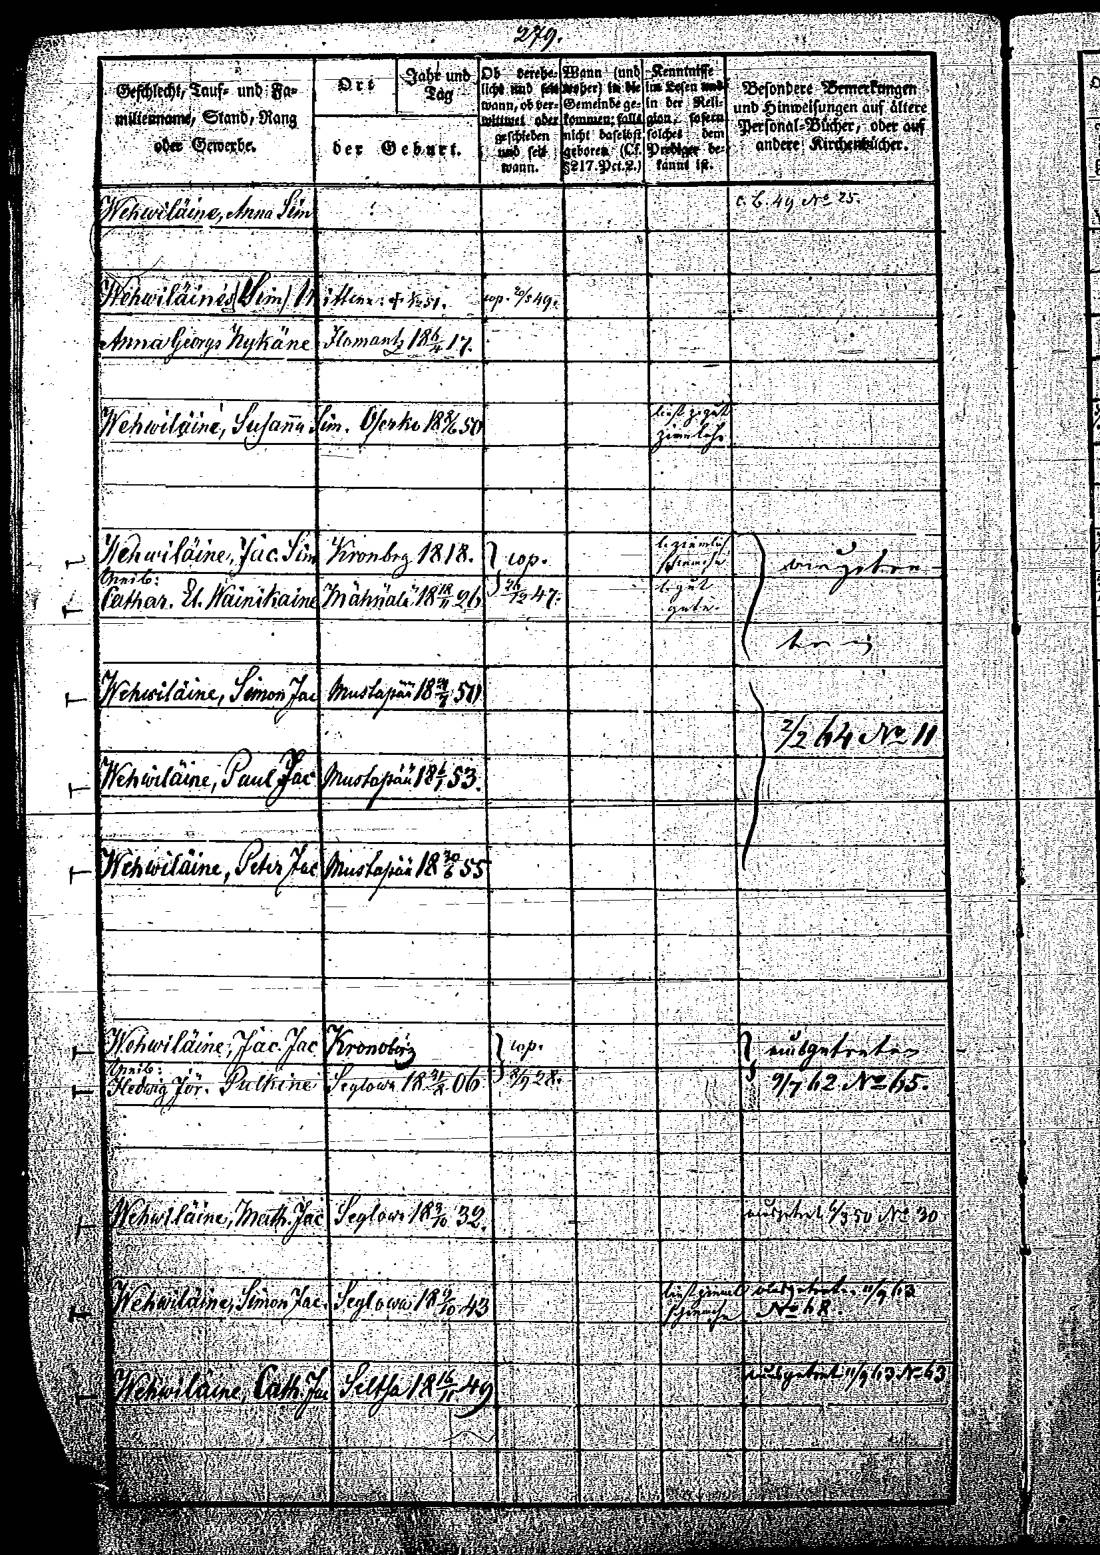 279.
Geschlecht, Tauf- und Familienname, Stand, Rang oder Gewerbe.
Ort
Jahr und Tag
der Geburt.
Ob verehelicht und seit wann, ob verwittwet oder geschieden und seit wann.
Wann (und woher) in die Gemeinde gekommen; falls nicht daselbst geboren (Cf. §217. Pct. 2.)
Kenntnisse im Lesen und in der Religion, sofern solches dem Prediger bekannt ist.
Besondere Bemerkungen und Hinweisungen auf ältere Personal-Bücher, oder auf andere Kirchenbücher.
Wehwiläine, Anna Sim
c. b. 49 No 25.
Wehwiläine's (Sim) Wittwe: cop. 49.
Anna Georgs Nykäne Ilomantz 18 6/4 17.
Wehwiläine, Susanna Sim. Oserki 18 50
liest z. gut
Wehwiläine, Jac. Sim Kronbrg 1818. cop.
Weib:
Cathar. El. Wäinikäine 18 18/11 26 26/12 47.
l. gut
Wehwiläine, Simon Jac Mustapää 18 50
2/2 64 No 11
Wehwiläine, Paul Jac Mustapää 18 53.
Wehwiläine, Peter Jac Mustapää 18 30/6 55
Wehwiläine, Jac. Jac Kronoborg cop. ausgetreten
Weib:
Hedwig Jör. Pulkine Seglowa 18 06 28. 9/7 62 No 65.
Wehwiläine, Math. Jac Seglowa 18 9/10 32. ausgetret 50 No 30
Wehwiläine, Simon Jac. Seglowa 18 9/10 43 ausgetreten 11/9 63
No 68.
Wehwiläine, Cath. Jac Seltsa 18 16/11 49 ausgetret 11/9 63 No 63